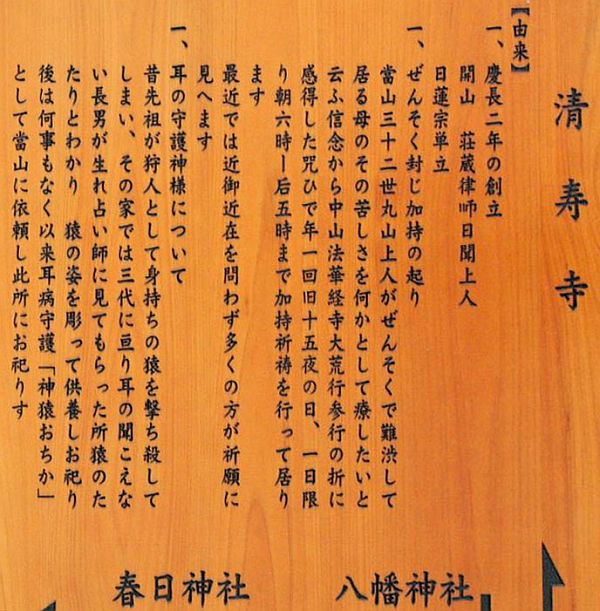 清寿寺
【由来】
一、慶長二年の創立
開山 荘蔵律師日聞上人
日蓮宗単立
一、ぜんそく封じ加持の起り
當山三十二世丸山上人がぜんそくで難渋して
居る母のその苦しさを何かとして療したいと
云ふ信念から中山法華経寺大荒行参行の折に
感得した咒ひで年一回旧十五夜の日、一日限
り朝六時ー后五時まで加持祈祷を行って居り
ます
最近では近御近在を問わず多くの方が祈願に
見へます
一、耳の守護神様について
昔先祖が狩人として身持ちの猿を撃ち殺して
しまい、その家では三代に亘り耳の聞こえな
い長男が生れ占い師に見てもらった所猿のた
たりとわかり 猿の姿を彫って供養しお祀り
後は何事もなく以来耳病守護「神猿おちか」
として當山に依頼し此所にお祀りす
春日神社
八幡神社